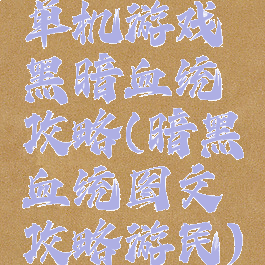 单机游戏
黑暗血统
攻略(暗黑
血统图文
攻略游民)